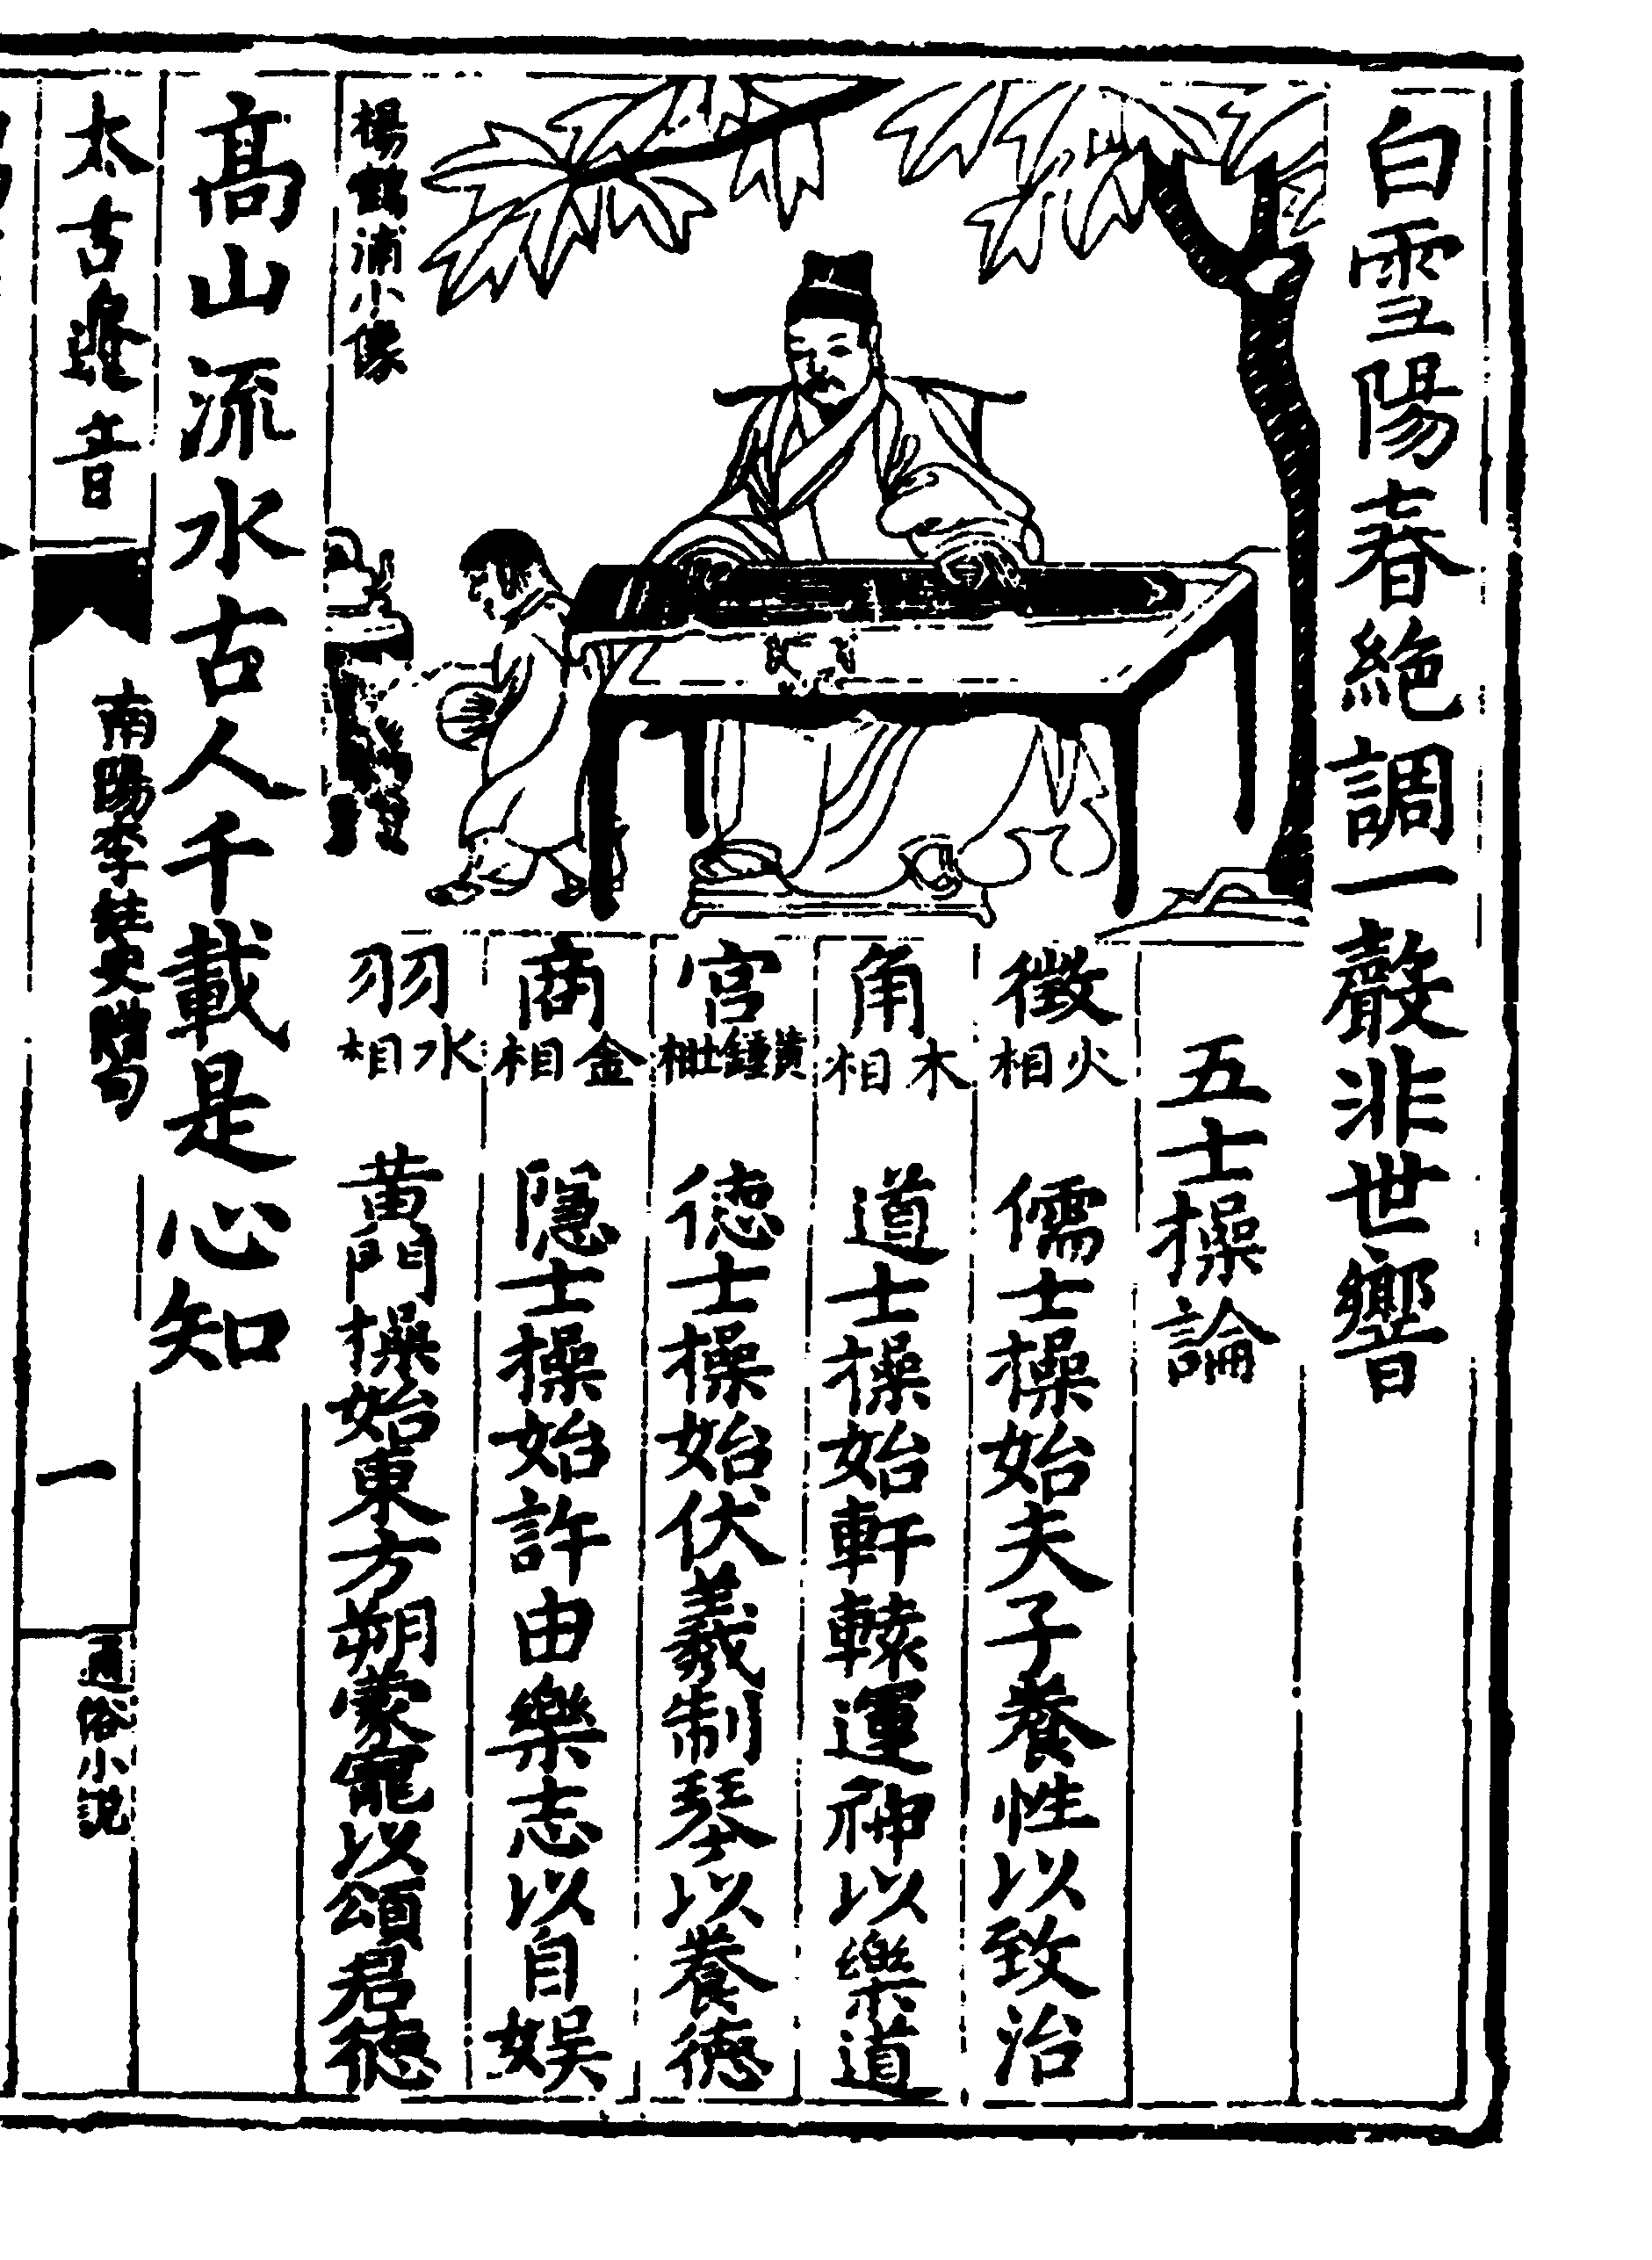 白雪陽春絕調一聲非世響
五士操論
徵 火相 儒士操始夫子養性以致治
角 木相 道士操始軒轅運神以樂道
宮 黃鍾 德士操始伏羲制琴以養德
商 金相 隱士操始許由樂志以自娛
羽 水相 黃門操始東方朔蒙寵以頌君德
楊 浦小像
高山流水古人千載是心知
太古遺音
南陽李 史 句
一
通俗小說